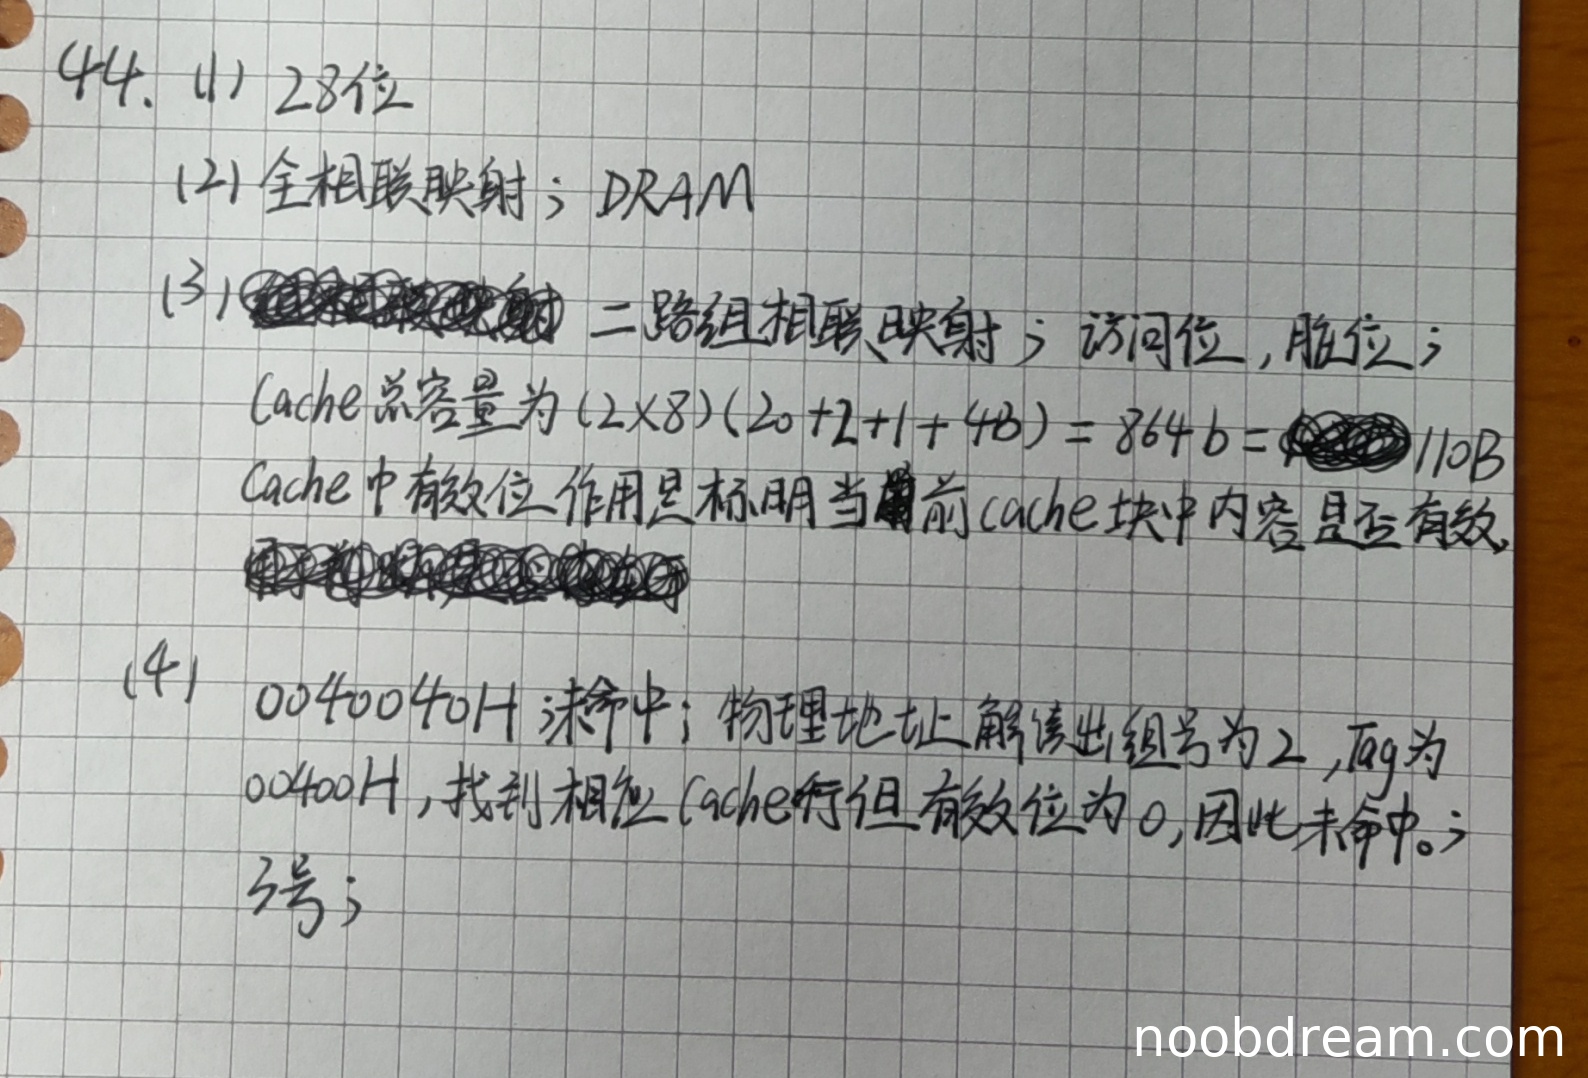 44. (1) 28位
(2) 全相联映射; DRAM
(3) 二路组相联映射; 访问位, 脏位;
Cache总容量为(2×8)(20+2+1+4B) = 864b = 110B
Cache中有效位作用是标明当前cache块中内容是否有效.
(4) 0040040H 未命中; 物理地址解读出组号为2, Tag为
00400H, 找到相应Cache行但有效位为0, 因此未命中。;
3号;
noobdream.com